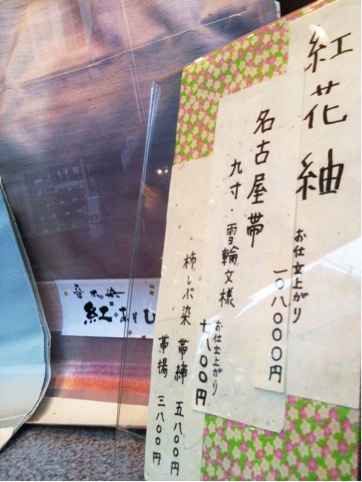 紅花紬
お仕立上がり
一〇八〇〇〇円
名古屋帯
九寸・雪輪文様
お仕立上がり
七八〇〇円
柿しぶ染 帯締 五八〇〇円
帯揚 三八〇〇円